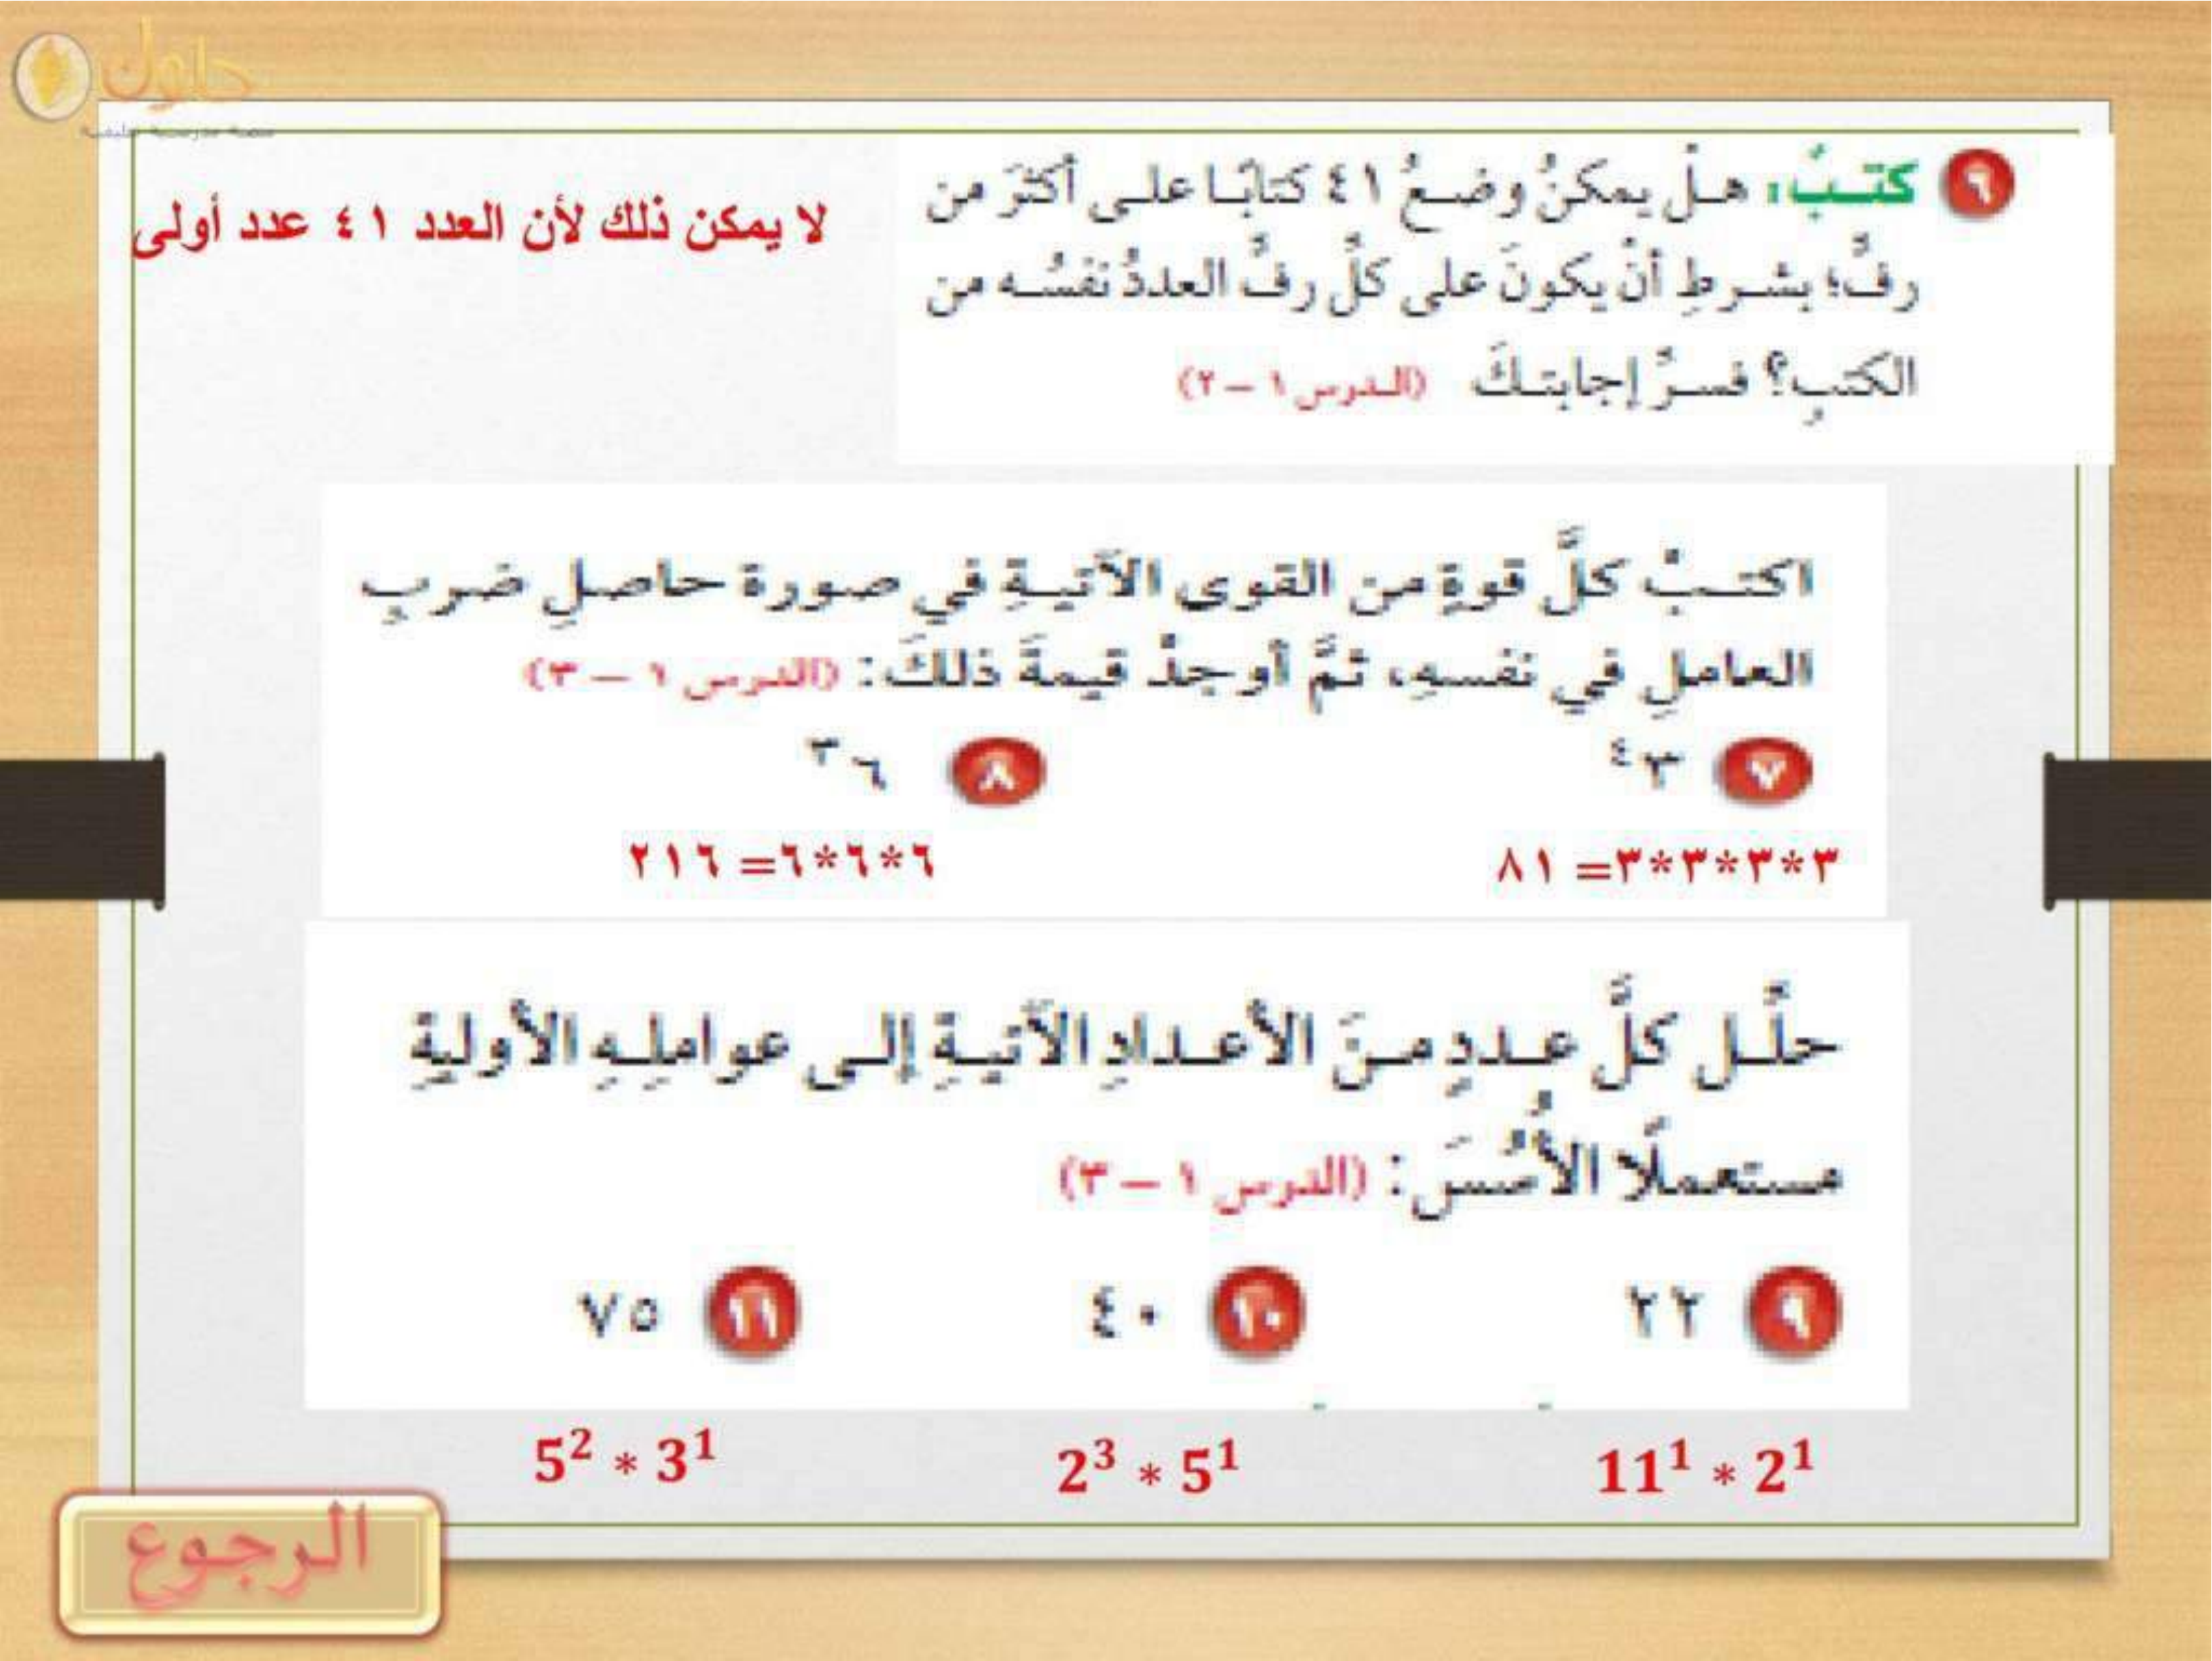 حلول
٦ كتب: هل يمكنُ وضعُ ٤١ كتابًا على أكثرَ من
رفٍّ؛ بشرطِ أنْ يكونَ على كلِّ رفٍّ العددُ نفسُه من
الكتبِ؟ فسرْ إجابتكَ (الدرس ١ – ٢)
لا يمكن ذلك لأن العدد ٤١ عدد أولى
اكتبْ كلَّ قوةٍ من القوى الآتيةِ في صورة حاصلِ ضربِ
العاملِ في نفسهِ، ثمَّ أوجدْ قيمةَ ذلكَ: (الدرس ١ – ٣)
٧ ٣⁴ ٨ ٦³
٣*٣*٣*٣= ٨١ ٦*٦*٦= ٢١٦
حلِّل كلَّ عددٍ منَ الأعدادِ الآتيةِ إلى عواملِهِ الأوليةِ
مستعملًا الأُسُسَ: (الدرس ١ – ٣)
٩ ٢٢ ١٠ ٤٠ ١١ ٧٥
11¹ * 2¹ 2³ * 5¹ 5² * 3¹
الرجوع